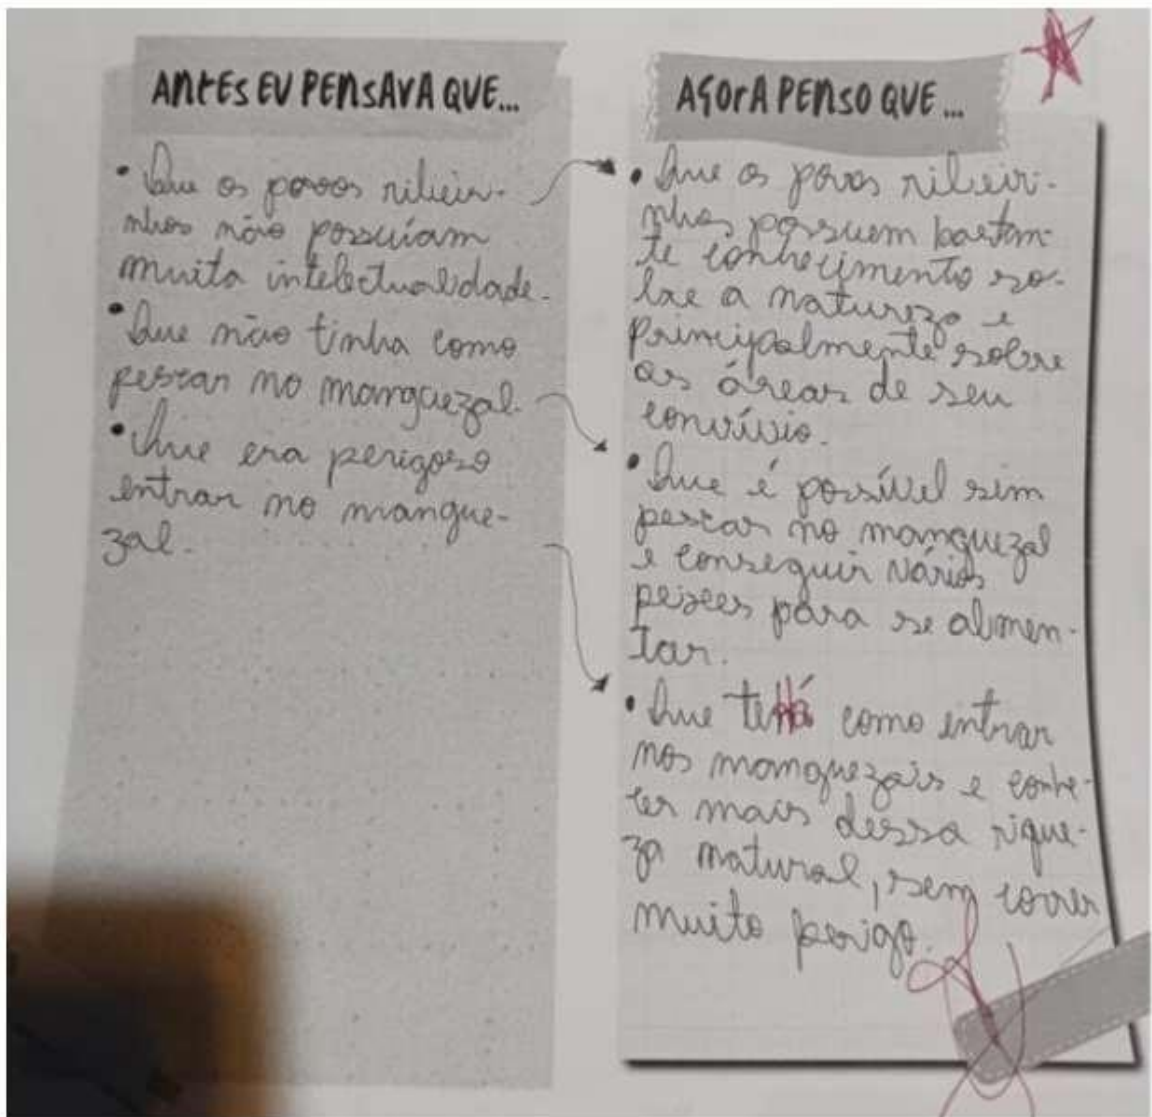 ANTES EU PENSAVA QUE...
• Que os povos ribeiri-
nhos não possuíam
muita intelectualidade.
• Que não tinha como
pescar no manguezal.
• Que era perigoso
entrar no mangue-
zal.
AGORA PENSO QUE...
• Que os povos ribeiri-
nhos possuem bastan-
te conhecimento so-
bre a natureza e
principalmente sobre
as áreas de seu
convívio.
• Que é possível sim
pescar no manguezal
e conseguir vários
peixes para se alimen-
tar.
• Que há como entrar
nos manguezais e conhe-
cer mais dessa rique-
za natural, sem correr
muito perigo.